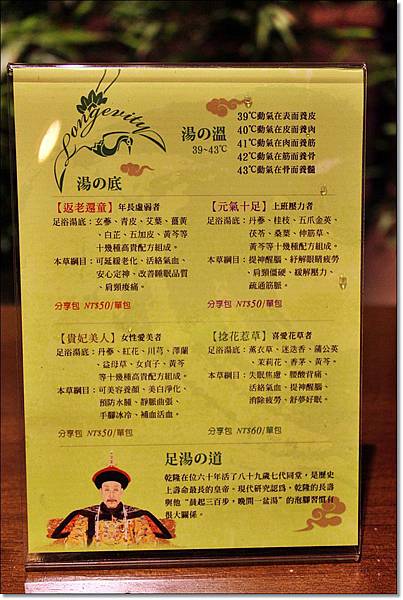 Longevity
湯の底
湯の溫
39~43℃
39℃動氣在表而養皮
40℃動氣在皮而養肉
41℃動氣在肉而養筋
42℃動氣在筋而養骨
43℃動氣在骨而養髓
【返老還童】年長虛弱者
足浴湯底：玄蔘、青皮、艾葉、薑黃
、白芷、五加皮、黃芩等
十幾種高貴配方組成。
本草綱目：可延緩老化、活絡氣血、
安心定神、改善睡眠品質
、肩頸痠痛。
分享包 NT$50/單包
【元氣十足】上班壓力者
足浴湯底：丹蔘、桂枝、五爪金英、
茯苓、桑葉、伸筋草、
黃芩等十幾種配方組成。
本草綱目：提神醒腦、紓解眼睛疲勞
、肩頸僵硬、緩解壓力、
疏通筋脈。
分享包 NT$50/單包
【貴妃美人】女性愛美者
足浴湯底：丹蔘、紅花、川芎、澤蘭
、益母草、女貞子、黃芩
等十幾種高貴配方組成。
本草綱目：可美容養顏、美白淨化、
預防水腫、靜脈曲張、
手腳冰冷、補血活血。
分享包 NT$50/單包
【捻花惹草】喜愛花草者
足浴湯底：薰衣草、迷迭香、蒲公英
、茉莉花、香茅、黃芩。
本草綱目：失眠焦慮、腰酸背痛、
活絡氣血、提神醒腦、
消除疲勞、舒夢好眠。
分享包 NT$60/單包
足湯の道
乾隆在位六十年活了八十九歲七代同堂，是歷史
上壽命最長的皇帝。現代研究認為，乾隆的長壽
與他“晨起三百步，晚間一盆湯”的泡腳習慣有
很大關係。